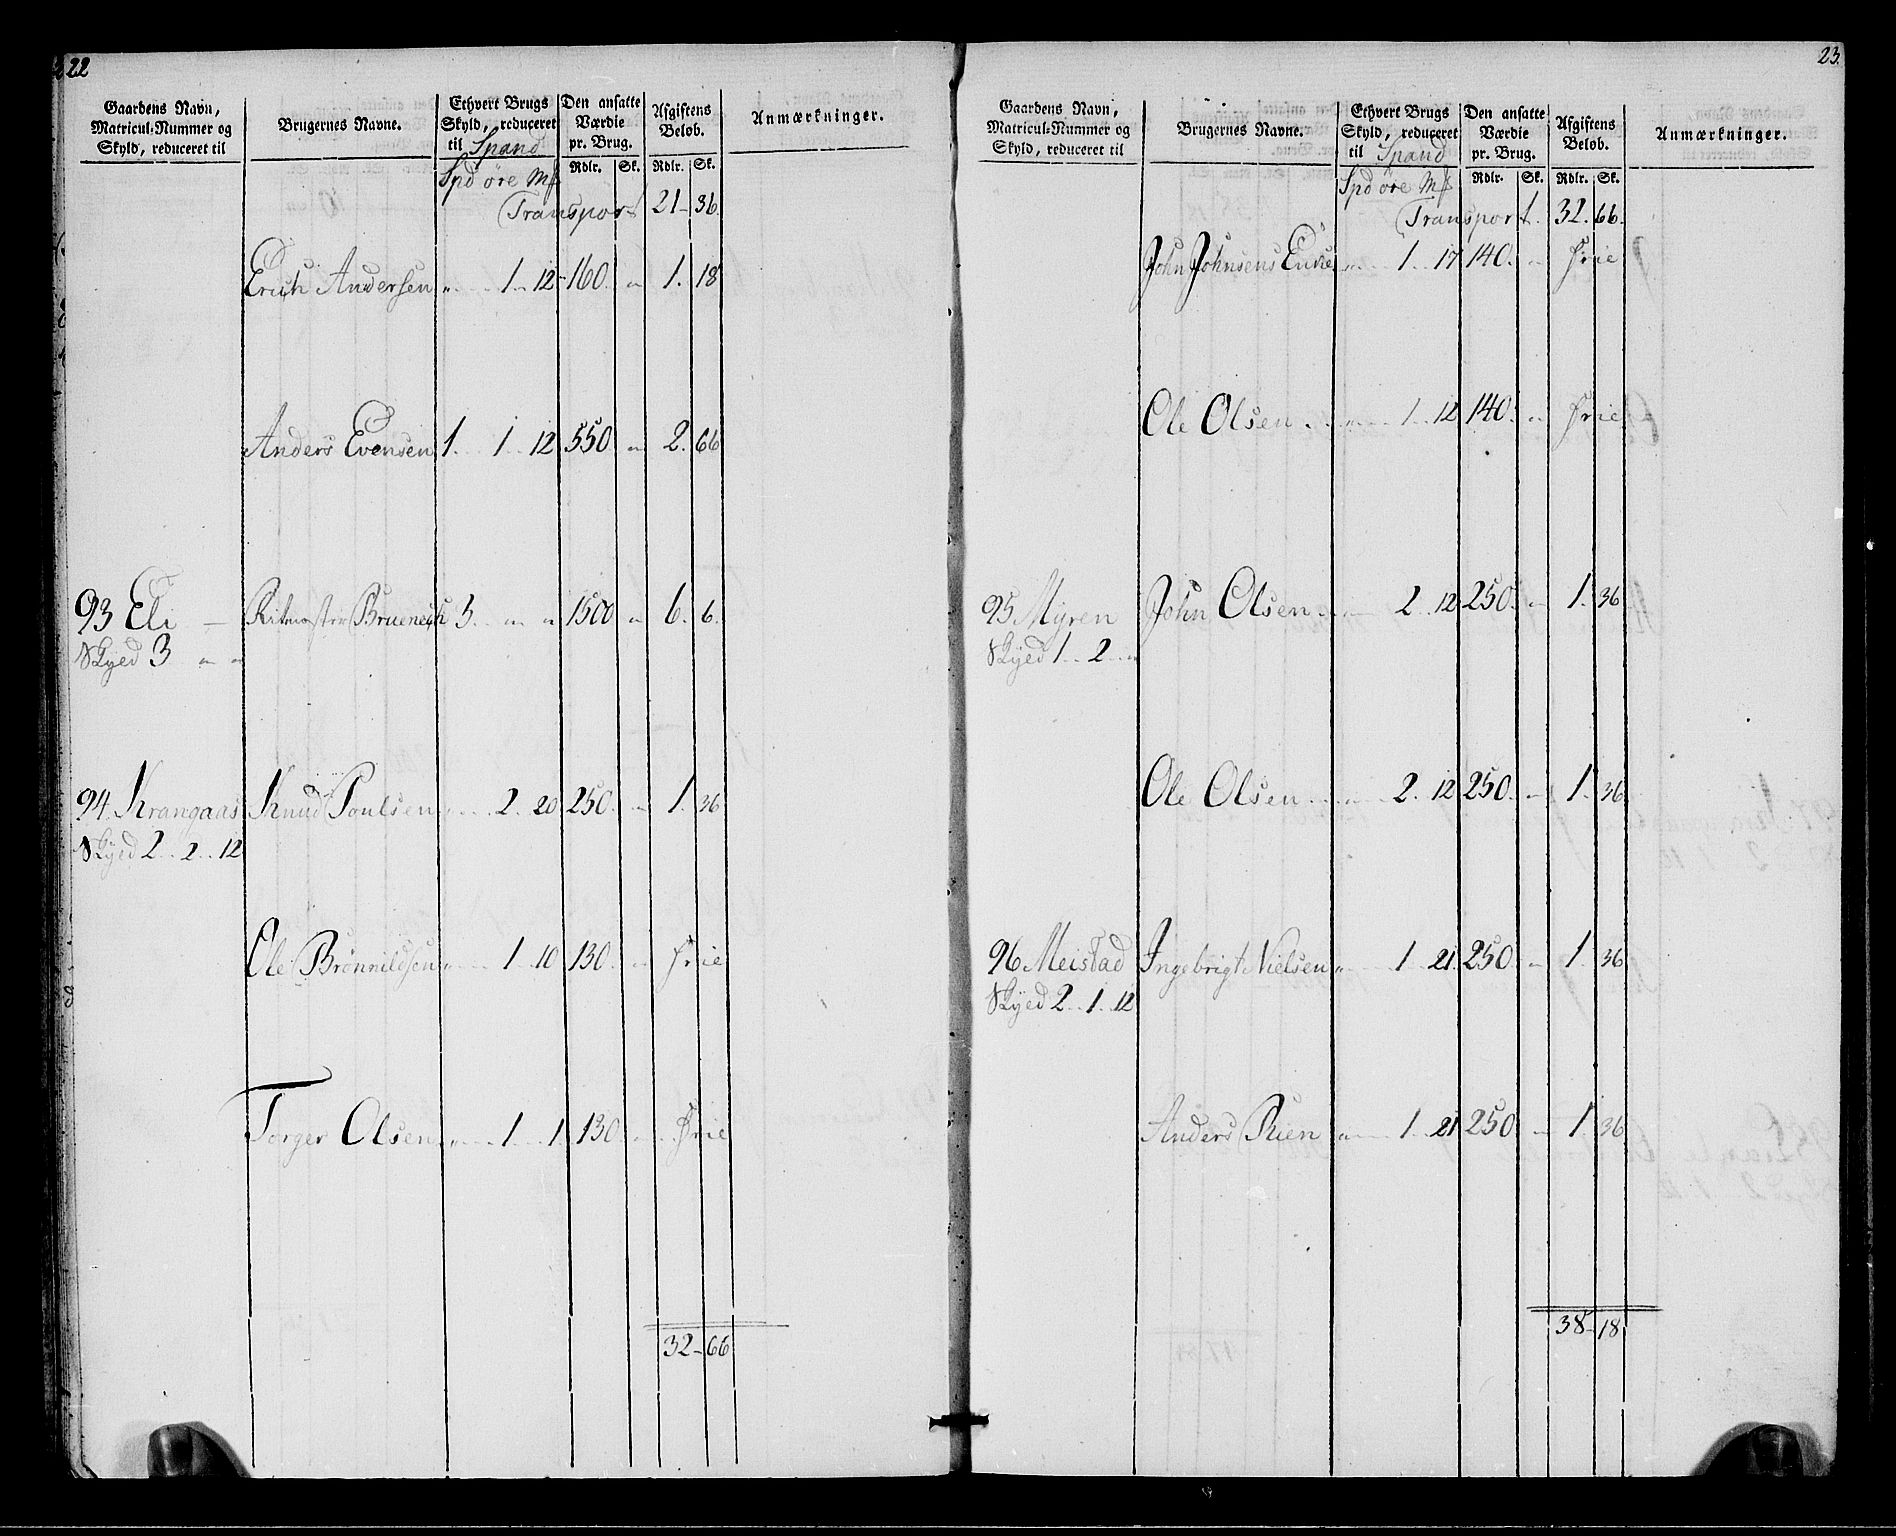 22
Gaardens Navn, Matricul-Nummer og Skyld, reduceret til | Brugernes Navne. | Ethvert Brugs Skyld, reduceret til Spand | Den ansatte Værdie pr. Brug. | Afgiftens Beløb. | Anmærkninger.
Spd øre Mk | Rdlr. | Sk. | Rdlr. | Sk.
Transport 21 - 36.
Erich Andersen „ 1 12 - 160. „ 1. 18
Anders Evensen 1. 1 12 550 „ 2. 66
93 Eli - Ritmester Bruenech 3. „ „ 1500 „ 6. 6.
Skyed 3 „ „
94. Krangaas Knud Poulsen „ 2. 20 250. „ 1. 36
Skyed 2. 2. 12
Ole Brønnildsen „ 1 10 130. „ frie
Torger Olsen „ 1 1 130. „ frie
32 - 66
23.
Gaardens Navn, Matricul-Nummer og Skyld, reduceret til | Brugernes Navne. | Ethvert Brugs Skyld, reduceret til Spand | Den ansatte Værdie pr. Brug. | Afgiftens Beløb. | Anmærkninger.
Spd øre Mk | Rdlr. | Sk. | Rdlr. | Sk.
Transport. 32. 66.
John Johnsens Enke „ 1 17 140. „ frie
Ole Olsen „ 1 12 140. „ frie
95 Myren John Olsen „ 2 12 250. „ 1. 36
Skyed 1. 2. „
Ole Olsen „ 2. 12 250. „ 1. 36
96 Meistad Ingebrigt Nielsen „ 1 21. 250. „ 1. 36
Skyed 2. 1. 12
Anders Rien „ 1 21 250 „ 1. 36
38 - 18